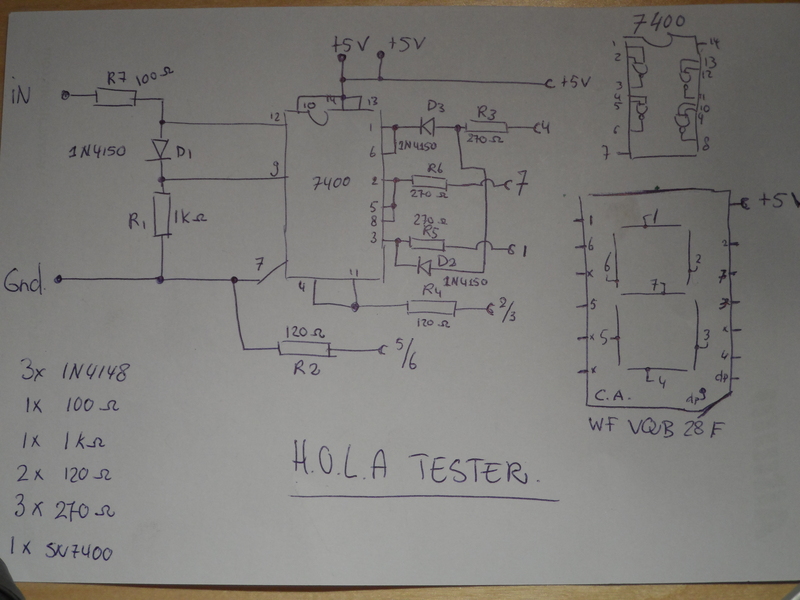 7400
+5V +5V
+5V
iN
R7 100Ω
1N4150 D1
R1 1kΩ
Gnd.
12
9
7
10 14 13
7400
1
6
2
5
8
3
4 11
D3
1N4150
R3
270Ω
4
R6
270Ω
7
270Ω
R5
1
D2
1N4150
R4
120Ω
2/3
120Ω
R2
5/6
1
2
3
4
5
6
7
14
13
12
11
10
9
8
+5V
1
6
x
5
x
x
2
7
3
x
4
dp
1
6
2
7
5
3
4
C.A. dp
WF VQUB 28 F
3x 1N4148
1x 100Ω
1x 1kΩ
2x 120Ω
3x 270Ω
1x SN7400
H.O.L.A TESTER.